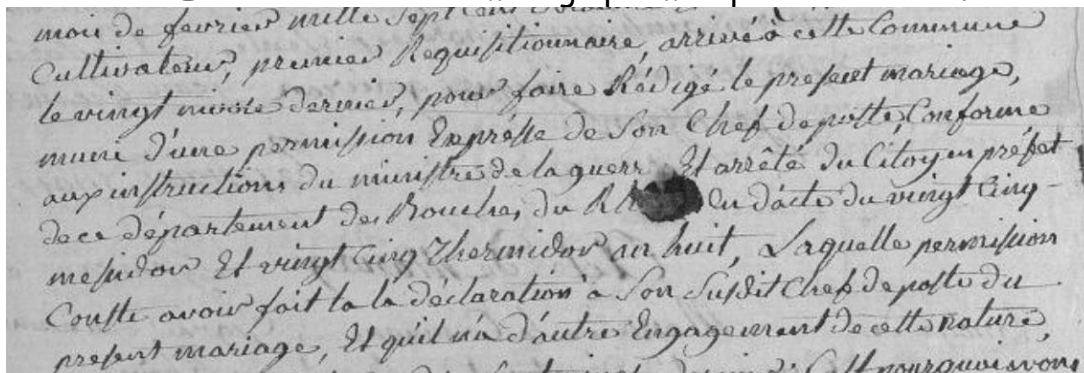 mois de fevrier mille sept cens
Cultivateur, premier Requisitionnaire, arrivé à cette Commune
le vingt nivose dernier, pour faire Rédigé le present mariage,
muni d'une permission Expresse de Son Chef de poste, Conforme
aux instructions du ministre de la guerre Et arrêté du Citoyen préfet
de ce département des Bouches du R En dacte du vingt Cinq
messidor Et vingt Cinq Thermidor an huit, Laquelle permission
Conste avoir fait la la déclaration à Son Susdit Chef de poste du
present mariage, Et qu'il n'a d'autre Engagement de cette nature,
C'est pourquoi avons